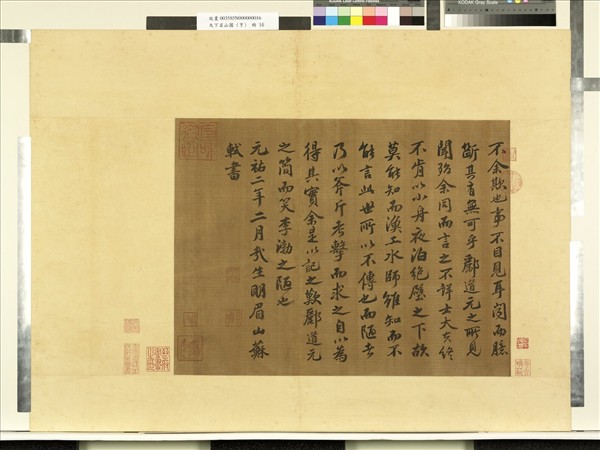 KODAK Gray Scale
不余欺也事不目見耳聞而臆
斷其有無可乎酈道元之所見
聞殆余同而言之不詳士大夫終
不肯以小舟夜泊絕壁之下故
莫能知而漁工水師雖知而不
能言此世所以不傳也而陋者
乃以斧斤考擊而求之自以為
得其實余是以記之歎酈道元
之簡而笑李渤之陋也
元祐二年二月哉生明眉山蘇
軾書